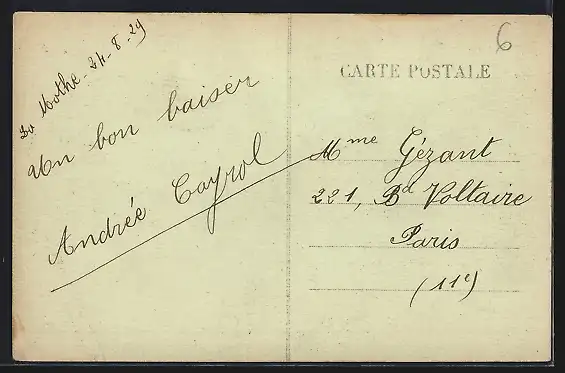 La Mothe - 24-8-29
Un bon baiser
Andrée Cayrol
6
CARTE POSTALE
Mme Gézant
221, Bd Voltaire
Paris
(11e)